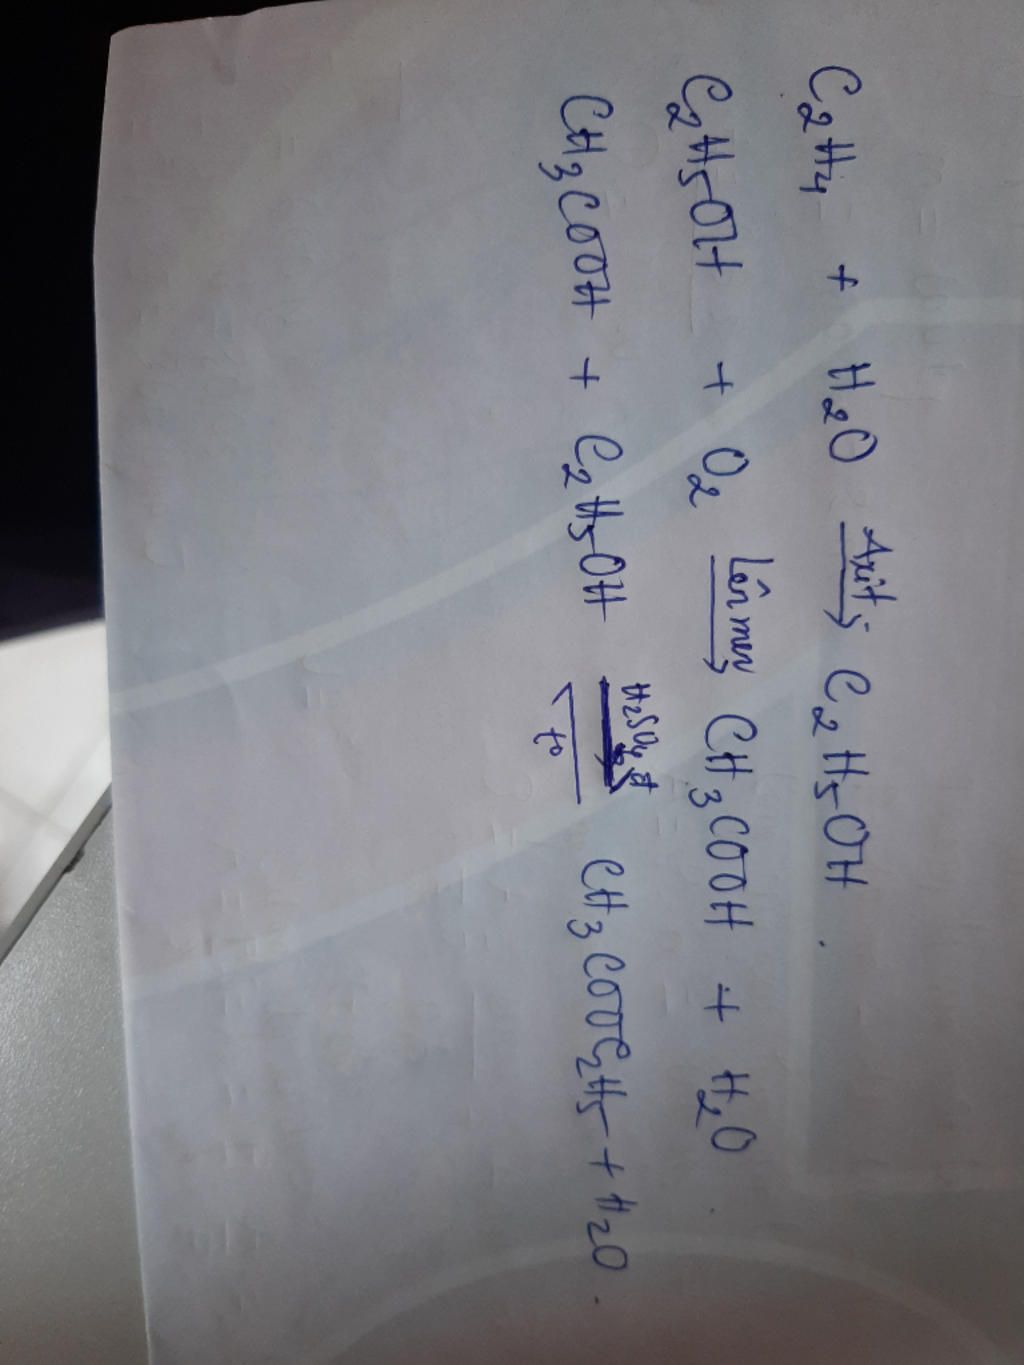 C₂H₄ + H₂O —Axit→ C₂H₅OH.
C₂H₅OH + O₂ —Lên men→ CH₃COOH + H₂O.
CH₃COOH + C₂H₅OH ⇌ H₂SO₄ đ, t° CH₃COOC₂H₅ + H₂O.